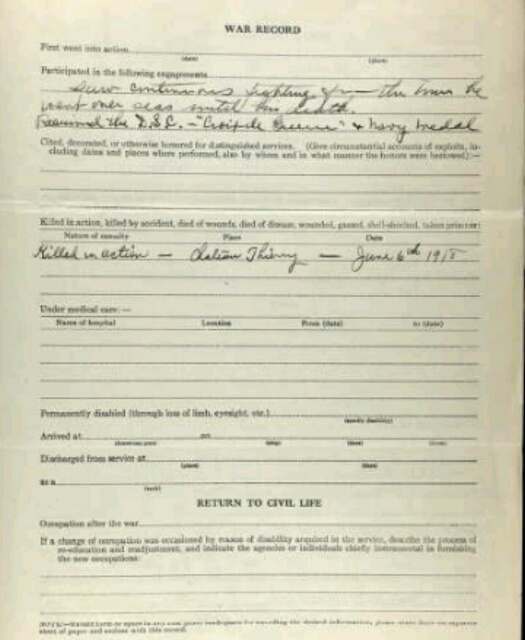 WAR RECORD
First went into action
(date) (place)
Participated in the following engagements
Saw continuous fighting from the time he
went over seas until his death.
Received the D.S.C. – "Croix de Guerre" & Navy Medal
Cited, decorated, or otherwise honored for distinguished services. (Give circumstantial accounts of exploits, in-
cluding dates and places where performed, also by whom and in what manner the honors were bestowed):—
Killed in action, killed by accident, died of wounds, died of disease, wounded, gassed, shell-shocked, taken prisoner:
Nature of casualty Place Date
Killed in action – Chateau Thierry – June 6th 1918
Under medical care:—
Name of hospital Location From (date) to (date)
Permanently disabled (through loss of limb, eyesight, etc.)
(specify disability)
Arrived at on
(ship) (date) (from)
Discharged from service at
(place) (date)
as a
(rank)
RETURN TO CIVIL LIFE
Occupation after the war
If a change of occupation was occasioned by reason of disability acquired in the service, describe the process of
re-education and readjustment, and indicate the agencies or individuals chiefly instrumental in furnishing
the new occupations:
sheet of paper and enclose with this record.